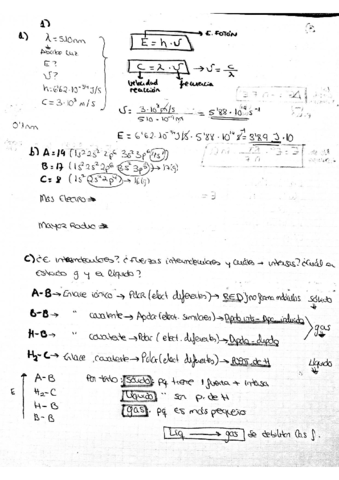 1)
a) λ = 510nm
E?
√?
h = 6'62·10⁻³⁴ J/s
C = 3·10⁸ m/s
E = h·√
E. FOTÓN
C = λ·√ → √ = C/λ
frecuencia
√ = 3·10⁸ m/s / 510·10⁻⁹ m = 5'88·10¹⁴ s⁻¹
E = 6'62·10⁻³⁴ J/s · 5'88·10¹⁴ s⁻¹ =
b) A = 19 (1s² 2s² 2p⁶ 3s² 3p⁶ 4s¹)
B = 17 (1s² 2s² 2p⁶ 3s² 3p⁵)
C = 8 (1s² 2s² 2p⁴)
Mas Electro
Mayor Radio
C) ¿E. intermoleculares? ¿Fuerzas intermoleculares y cuales + intensas? ¿Cuál en
estado g y el líquido?
A-B → Enlace iónico → Polar (elect diferentes) → RED/no forma moléculas sólido
B-B → " covalente → Apolar (elect. similares) →
H-B → " covalente → Polar (elect. diferentes) → Dipolo-dipolo
gas
H₂-C → Enlace covalente → Polar (elect diferentes) → líquido
E
A-B
H₂-C
H-B
B-B
Por tanto: sólido pq tiene 1 fuerza + intensa
líquido " son p. de H
gas. pq es más pequeño
Liq → gas se debilitan las f.